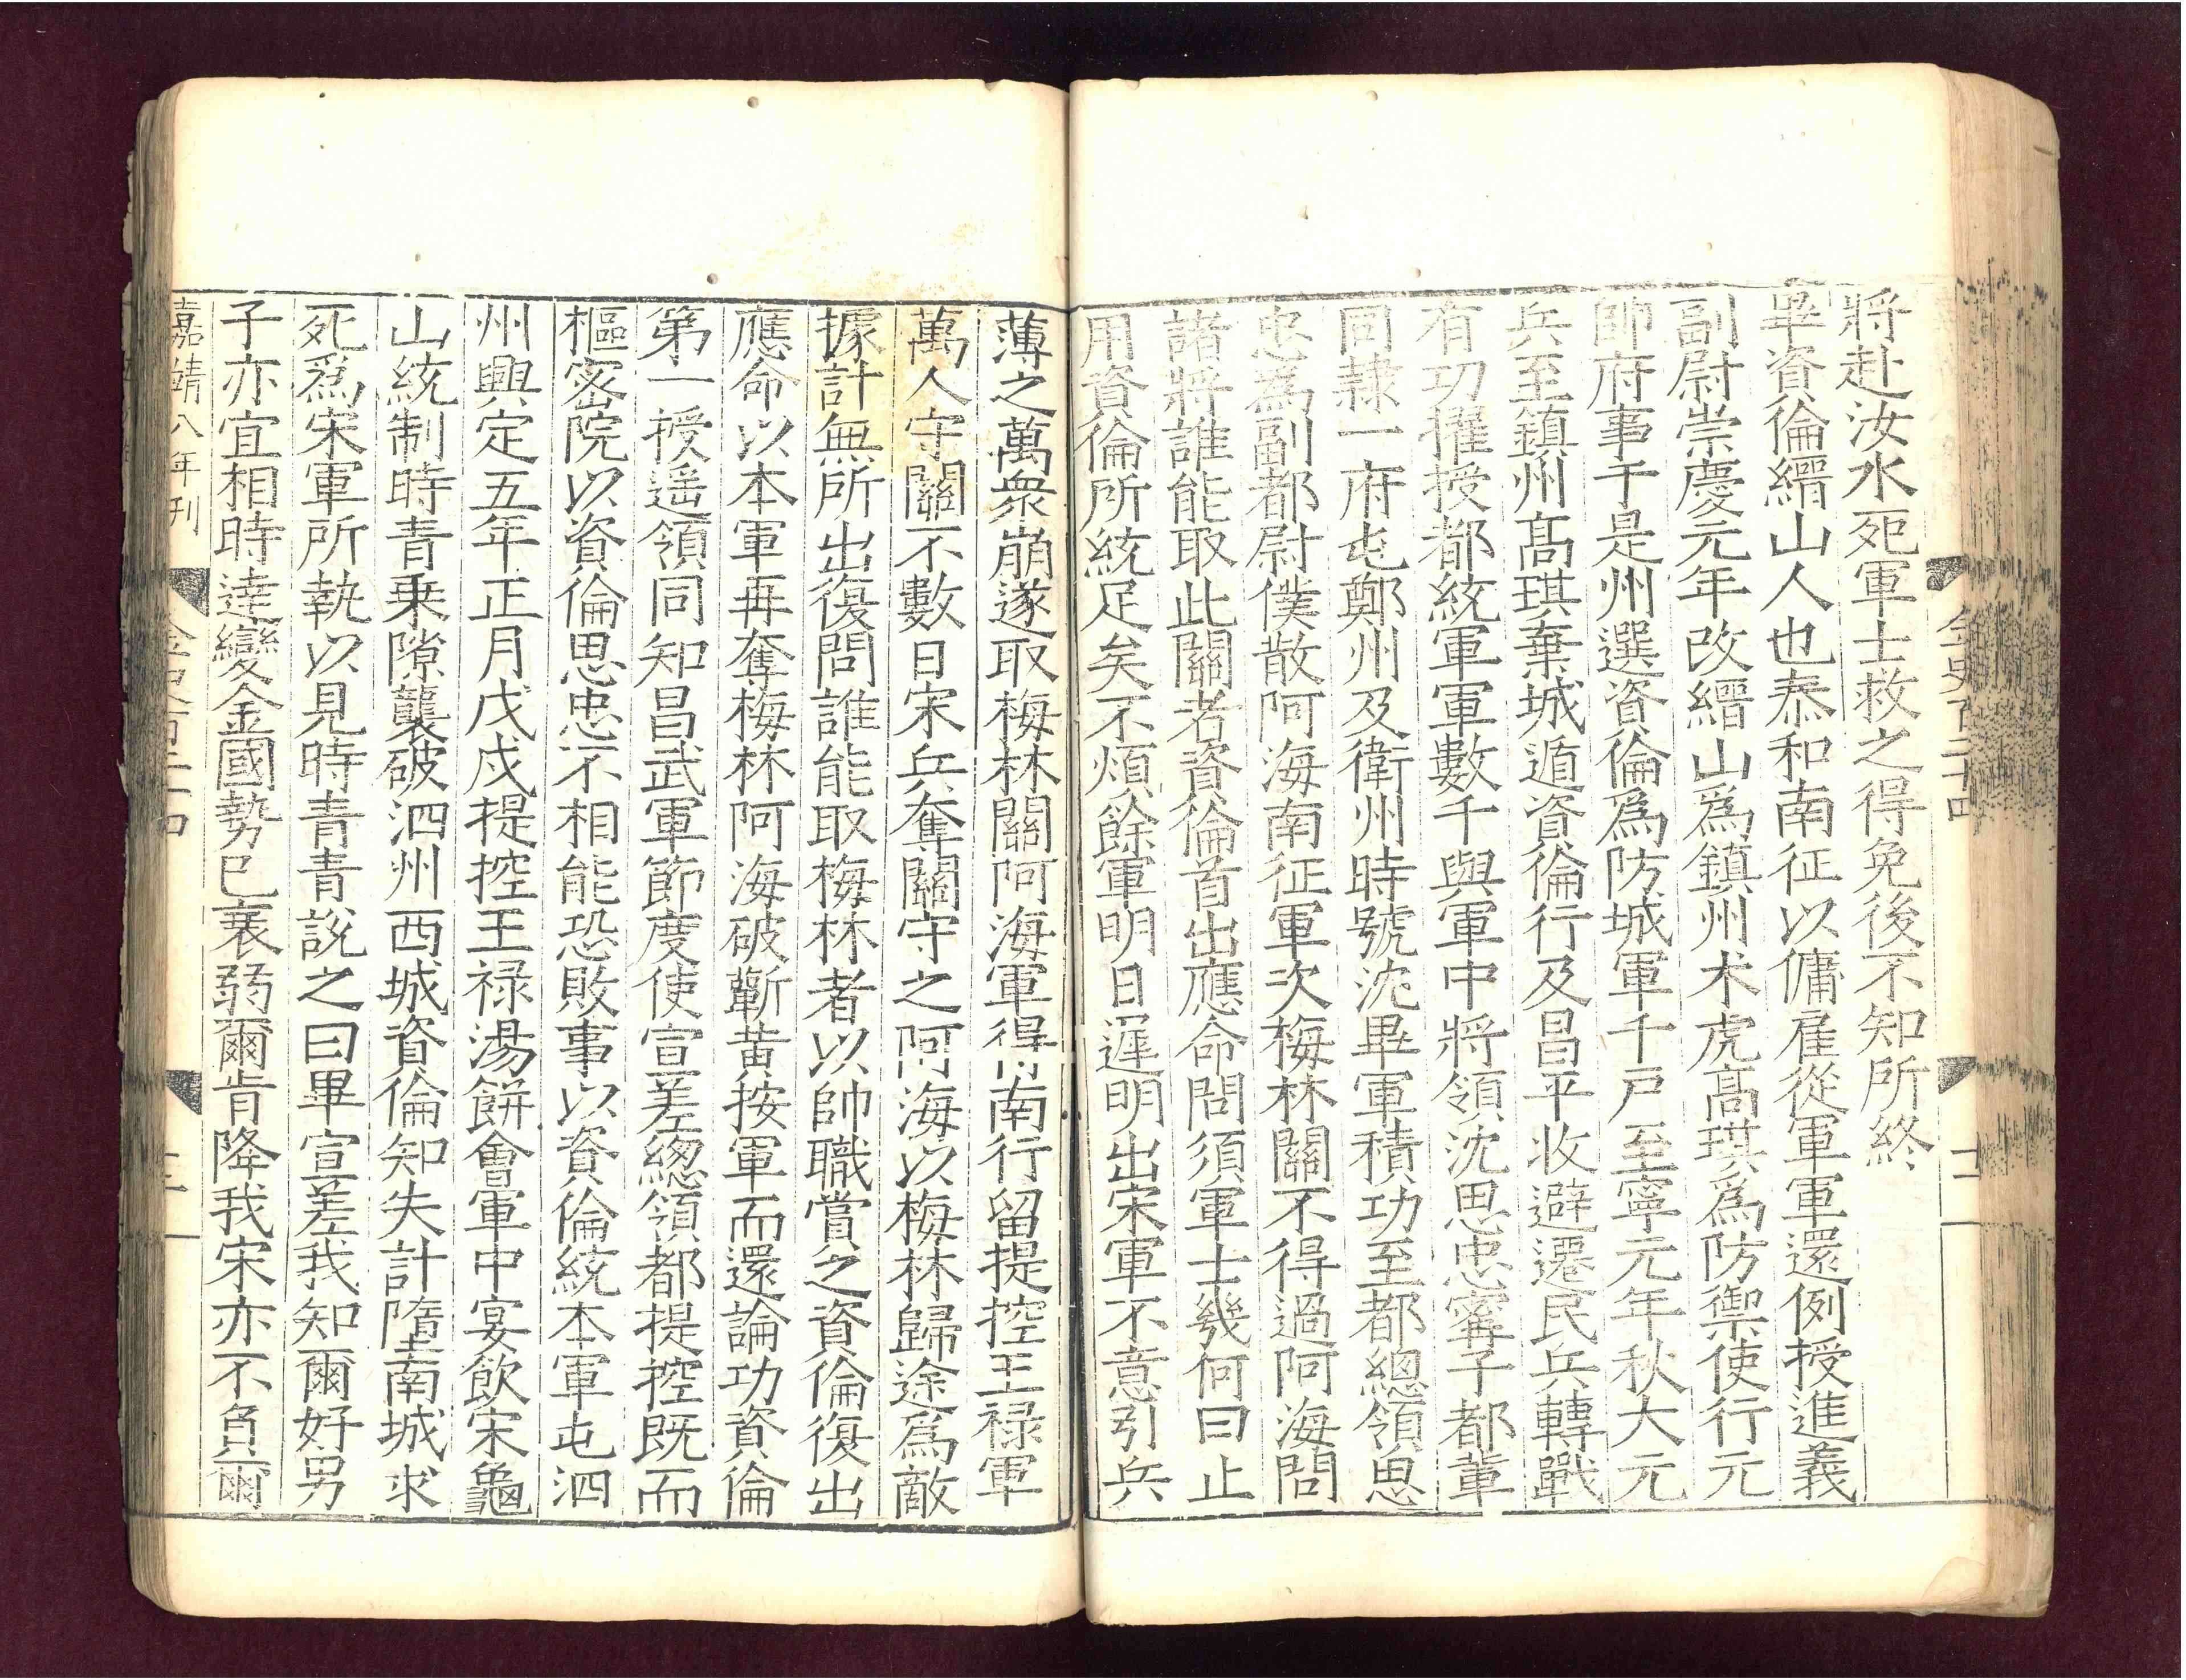 將赴汝水死軍士救之得免後不知所終
畢資倫縉山人也泰和南征以傭雇從軍軍還例授進義
副尉崇慶元年改縉山爲鎮州术虎高琪爲防禦使行元
帥府事于是州選資倫爲防城軍千戶至寧元年秋大元
兵至鎮州髙琪棄城遁資倫行及昌平收避遷民兵轉戰
有功擢授都統軍軍數千與軍中將領沈思忠寗子都軰
同隸一府屯鄭州及衛州時號沈畢軍積功至都總領思
忠爲副都尉僕散阿海南征軍次梅林關不得過阿海問
諸將誰能取此關者資倫首出應命問須軍士幾何曰止
用資倫所統足矣不煩餘軍明日遲明出宋軍不意引兵
薄之萬衆崩遂取梅林關阿海軍得南行留提控王禄軍
萬人守關不數日宋兵奪關守之阿海以梅林歸途爲敵
據計無所出復問誰能取梅林者以帥職賞之資倫復出
應命以本軍再奪梅林阿海破蘄黄按軍而還論功資倫
第一授遥領同知昌武軍節度使宣差總領都提控既而
樞密院以資倫思忠不相能恐敗事以資倫統本軍屯泗
州興定五年正月戊戍提控王禄湯餅會軍中宴飲宋龜
山統制時青乗隙襲破泗州西城資倫知失計墮南城求
死爲宋軍所執以見時青青説之曰畢宣差我知爾好男
子亦宜相時達變金國勢巳衰弱爾肯降我宋亦不負爾
嘉靖八年刊
金史百二十四